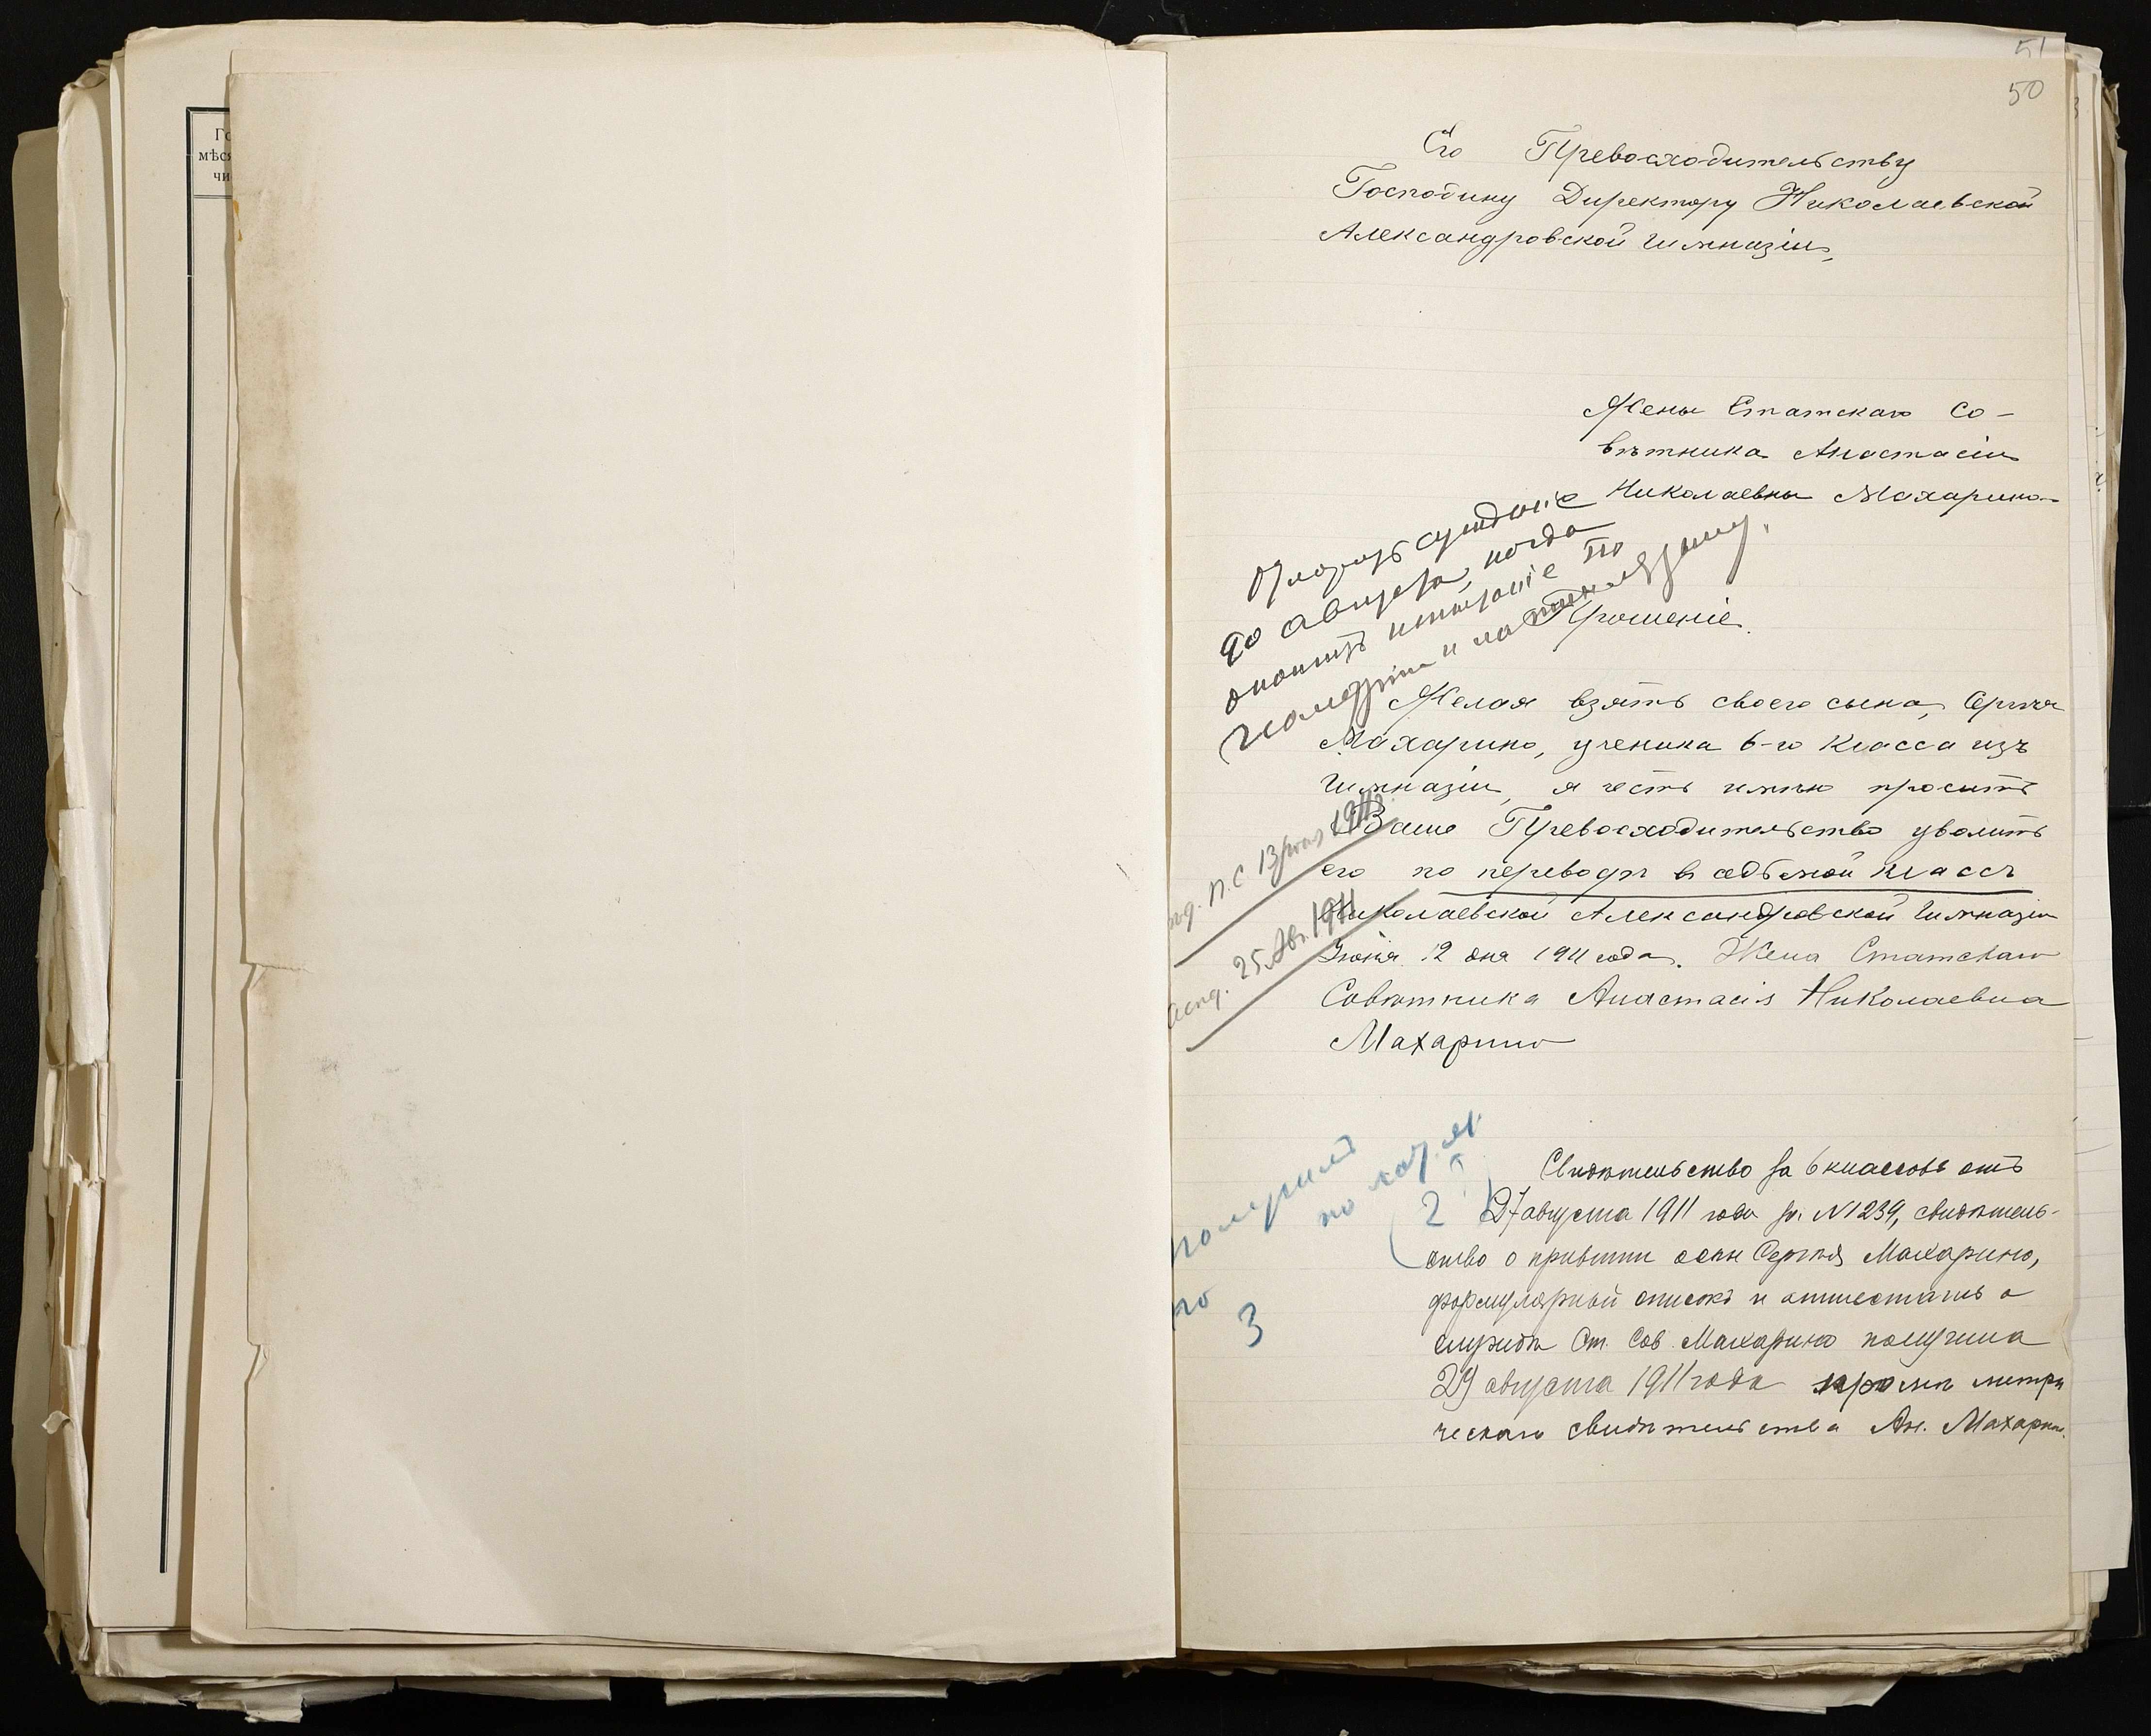 Го
мѣся
чи
51
50
Его Превосходительству
Господину Директору Николаевской
Александровской гимназіи,
Жены Статскаго Со-
вѣтника Анастасіи
Николаевны Махарино
до августа, когда
Прошеніе.
Желая взять своего сына, Сергѣя
Махарино, ученика 6-го класса изъ
гимназіи, я честь имѣю просить
Ваше Превосходительство уволить
его по переводѣ в седьмой классъ
Николаевской Александровской гимназіи
Іюня 12 дня 1911 года. Жена Статскаго
Совѣтника Анастасія Николаевна
Махарино
П.С. 13 1911
25 Авг. 1911
получилъ
по
2
по
3
Свидѣтельство за 6 классовъ отъ
27 августа 1911 года за № 1239, свидѣтель-
ство о привитии оспы Сергѣя Махарино,
формулярный списокъ и аттестатъ о
службѣ Ст. Сов. Махарино получила
29 августа 1911 года кромѣ метри
ческаго свидѣтельства Ан. Махарино.